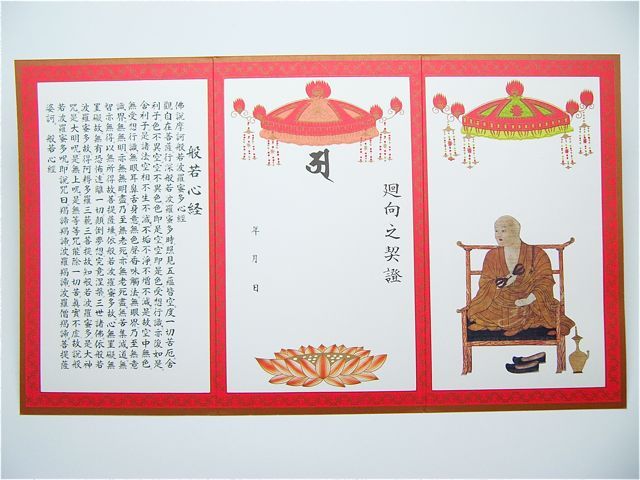 廻向之契證
年 月 日
般若心経
佛説摩訶般若波羅蜜多心経
觀自在菩薩行深般若波羅蜜多時照見五蘊皆空度一切苦厄舍
利子色不異空空不異色色即是空空即是色受想行識亦復如是
舍利子是諸法空相不生不滅不垢不淨不増不減是故空中無色
無受想行識無眼耳鼻舌身意無色聲香味觸法無眼界乃至無意
識界無無明亦無無明盡乃至無老死亦無老死盡無苦集滅道無
智亦無得以無所得故菩提薩埵依般若波羅蜜多故心無罣礙無
罣礙故無有恐怖遠離一切顛倒夢想究竟涅槃三世諸佛依般若
波羅蜜多故得阿耨多羅三藐三菩提故知般若波羅蜜多是大神
呪是大明呪是無上呪是無等等呪能除一切苦真實不虚故説般
若波羅蜜多呪即説呪曰羯諦羯諦波羅羯諦波羅僧羯諦菩提薩
婆訶 般若心経